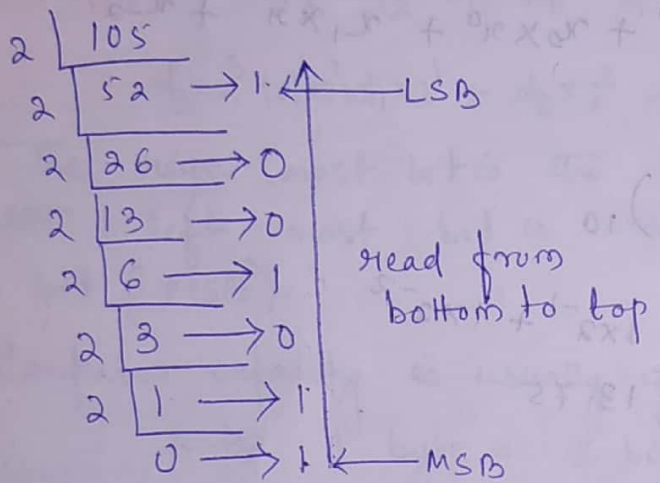 2 105
2 52 → 1 ← LSB
2 26 → 0
2 13 → 0
2 6 → 1
2 3 → 0
2 1 → 1
0 → 1 ← MSB
read from
bottom to top